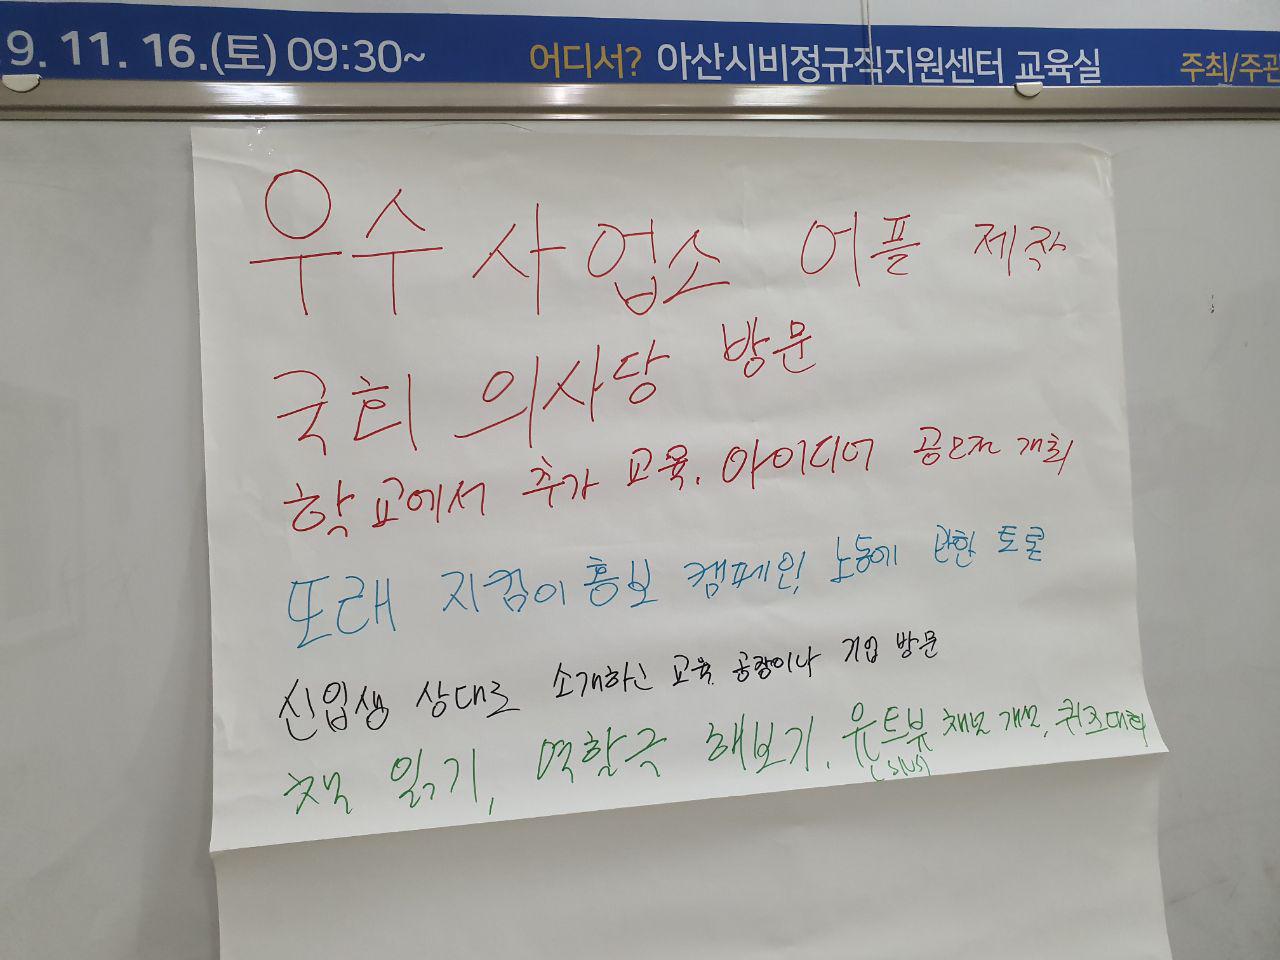 9. 11. 16.(토) 09:30~ 어디서? 아산시비정규직지원센터 교육실 주최/주관
우수 사업소 어플 제작
국회 의사당 방문
학교에서 추가 교육. 아이디어 공모전 개최
또래 지킴이 홍보 캠페인, 노동에 관한 토론
신입생 상대로 소개하신 교육. 공장이나 기업 방문
책 읽기, 역할극 해보기. 유트뷰 채널 개설, 퀴즈대회
(SNS)